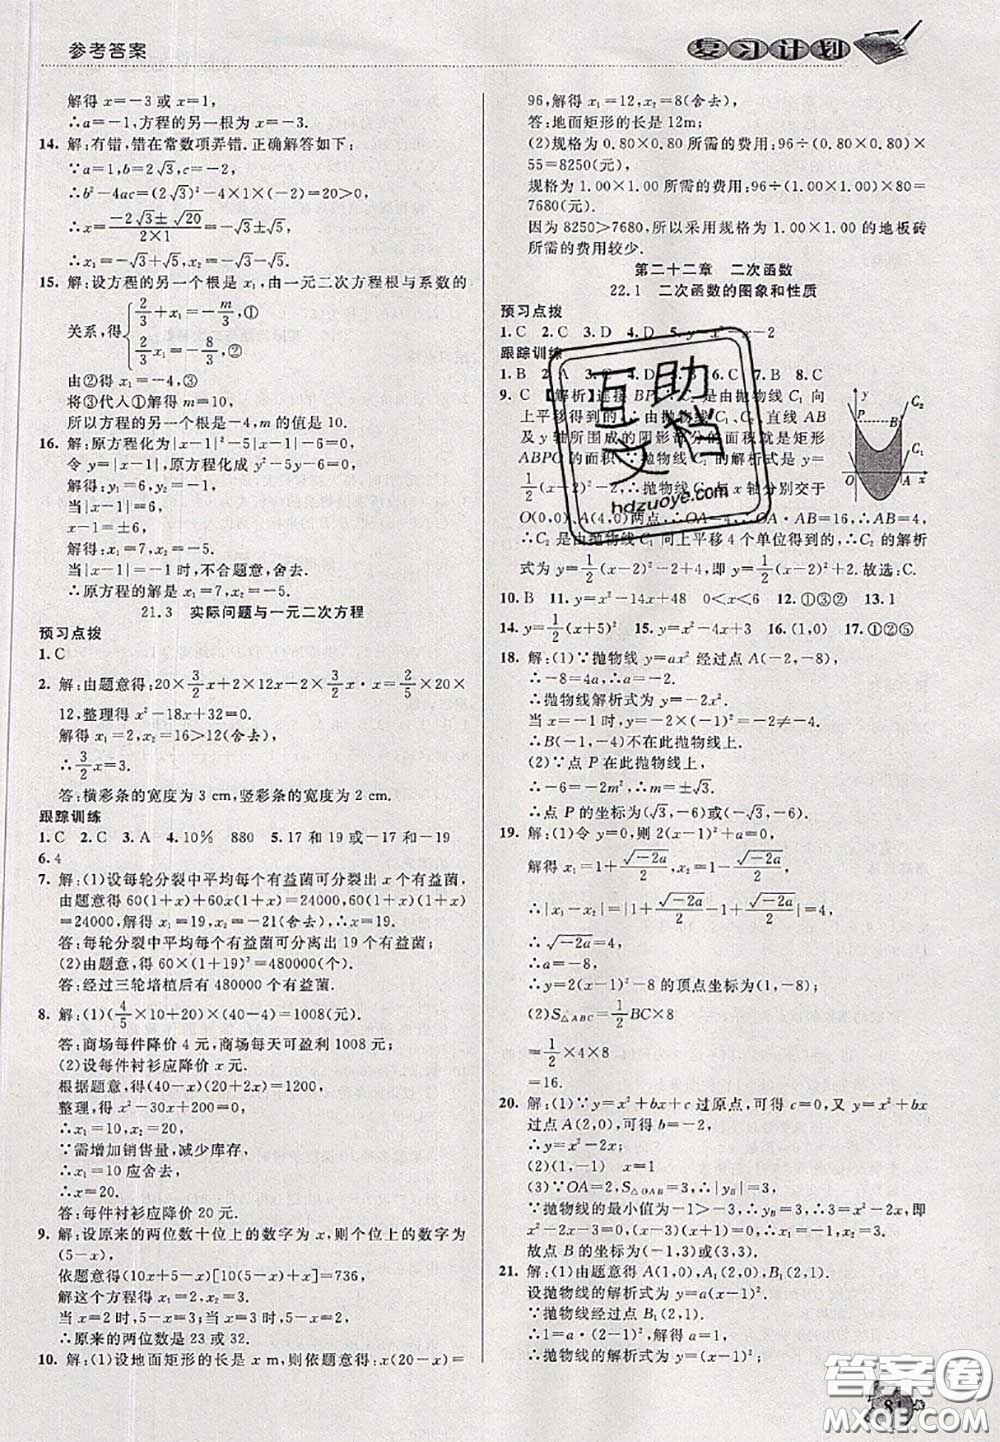 参考答案
复习计划
解得 x=-3或 x=1,
∴a=-1,方程的另一个根为 x=-3.
14. 解:有错,错在常数项弄错.正确解答如下:
∵a=1,b=2√3,c=-2,
∴b²-4ac=(2√3)²-4×1×(-2)=20>0,
∴x=(-2√3±√20)/(2×1)=-√3±√5,
∴x₁=-√3+√5,x₂=-√3-√5.
15. 解:设方程的另一个根是 x₁,由一元二次方程根与系数的
关系,得{2/3+x₁=-m/3,①
2/3·x₁=-8/3,②
由②得解得 x₁=-4,③
将③代人①解得 m=10,
所以方程的另一个根是-4,m的值是10.
16. 解:原方程化为|x-1|²-5|x-1|-6=0,
令 y=|x-1|,原方程化成 y²-5y-6=0.
解得:y₁=6,y₂=-1.
当|x-1|=6,
x-1=±6,
解得:x₁=7,x₂=-5.
当|x-1|=-1时,不合题意,舍去.
∴原方程的解是 x₁=7,x₂=-5.
21.3 实际问题与一元二次方程
预习点拨
1.C
2. 解:由题意得:20×3/2x+2×12x-2×3/2x·x=2/5×20×
12,整理得 x²-18x+32=0.
解得 x₁=2,x₂=16>12(舍去),
∴3/2x=3.
答:横彩条的宽度为 3 cm,竖彩条的宽度为 2 cm.
跟踪训练
1.C 2.C 3.A 4.10% 880 5.17 和 19 或-17 和-19
6.4
7. 解:(1)设每轮分裂中平均每个有益菌可分裂出 x 个有益菌,
由题意得60(1+x)+60x(1+x)=24000,即60(1+x)²
=24000,解得 x₁=19,x₂=-21(舍去),∴x=19.
答:每轮分裂中平均每个有益菌可分离出 19 个有益菌;
(2)由题意,得 60×(1+19)³=480000(个).
答:经过三轮培植后有 480000 个有益菌.
8. 解:(1)(4/5×10+20)×(40-4)=1008(元).
答:商场每件降价 4 元,商场每天可盈利 1008 元;
(2)设每件衬衫应降价 x 元.
根据题意,得(40-x)(20+2x)=1200,
整理,得 x²-30x+200=0,
∴x₁=10,x₂=20.
∵需增加销售量,减少库存,
∴x₁=10 应舍去,
∴x=20.
答:每件衬衫应降价 20 元.
9. 解:设原来的两位数十位上的数字为 x,则个位上的数字为
(5-x),
依题意得(10x+5-x)[10(5-x)+x]=736,
解这个方程得 x₁=2,x₂=3.
当 x=2 时,5-x=3;当 x=3 时,5-x=2.
∴原来的两位数是 23 或 32.
10. 解:(1)设地面矩形的长是 x m,则依题意得:x(20-x)=
96,解得 x₁=12,x₂=8(舍去),
答:地面矩形的长是 12m;
(2)规格为 0.80×0.80 所需的费用:96÷(0.80×0.80)×
55=8250(元).
规格为 1.00×1.00 所需的费用:96÷(1.00×1.00)×80=
7680(元).
因为 8250>7680,所以采用规格为 1.00×1.00 的地板砖
所需的费用较少.
第二十二章 二次函数
22.1 二次函数的图象和性质
预习点拨
1.C 2.C 3.D 4.D 5.y=x²-x-2
跟踪训练
1.B 2.A 3. 4.D 5.B 6.C 7.B 8.C
9. C 【解析】连接 BP C₂ 是由抛物线 C₁ 向
上平移得到的 ∴由抛物线 C₁、C₂、直线 AB
及 y 轴所围成的阴影部分的面积就是矩形
ABPO 的面积 ∵抛物线 C₁ 的解析式是 y=
1/2(x-2)²-2,∴抛物线 C₁ 与 x 轴分别交于
O(0,0)、A(4,0)两点,∴OA=4,∴OA·AB=16,∴AB=4,
∴C₂ 是由抛物线 C₁ 向上平移 4 个单位得到的,∴C₂ 的解析
式为 y=1/2(x-2)²-2+4,即 y=1/2(x-2)²+2.故选:C.
10.B 11.y=x²-14x+48 0<x<6 12.①③② 13.1
14.y=1/2(x+5)² 15.y=x²-4x+3 16.(1,0) 17.①②⑤
18. 解:(1)∵抛物线 y=ax² 经过点 A(-2,-8),
∴-8=4a,∴a=-2,
∴抛物线解析式为 y=-2x².
当 x=-1 时,y=-2×(-1)²=-2≠-4.
∴B(-1,-4)不在此抛物线上.
(2)∵点 P 在此抛物线上,
∴-6=-2m²,∴m=±√3.
∴点 P 的坐标为(√3,-6)或(-√3,-6).
19. 解:(1)令 y=0,则 2(x-1)²+a=0,
解得 x₁=1+√-2a/2,x₂=1-√-2a/2,
∴|x₁-x₂|=|1+√-2a/2-1+√-2a/2|=4,
∴√-2a=4,
∴a=-8,
∴y=2(x-1)²-8 的顶点坐标为(1,-8)
(2)S△ABC=1/2BC×8
=1/2×4×8
=16.
20. 解:(1)∵y=x²+bx+c 过原点,可得 c=0,又 y=x²+bx
过点 A(2,0),可得 b=-2,
∴y=x²-2x;
(2)(1,-1) x=1
(3)∵OA=2,S△OAB=3,∴|yB|=3,
∵抛物线的最小值为-1>-3,∴yB=3,
∴x²-2x-3=0,(x-3)(x+1)=0,∴x=-1,x=3.
故点 B 的坐标为(-1,3)或(3,3).
21. 解:(1)由题意得 A(1,0),A₁(2,0),B₁(2,1).
设抛物线的解析式为 y=a(x-1)².
∵抛物线经过点 B₁(2,1).
∴1=a(2-1)²,解得 a=1.
∴抛物线的解析式为 y=(x-1)²;
y
C₂
P
B
C₁
O
A
x
互助文档
hdzuoye.com
答案圈
MXQE.COM
81